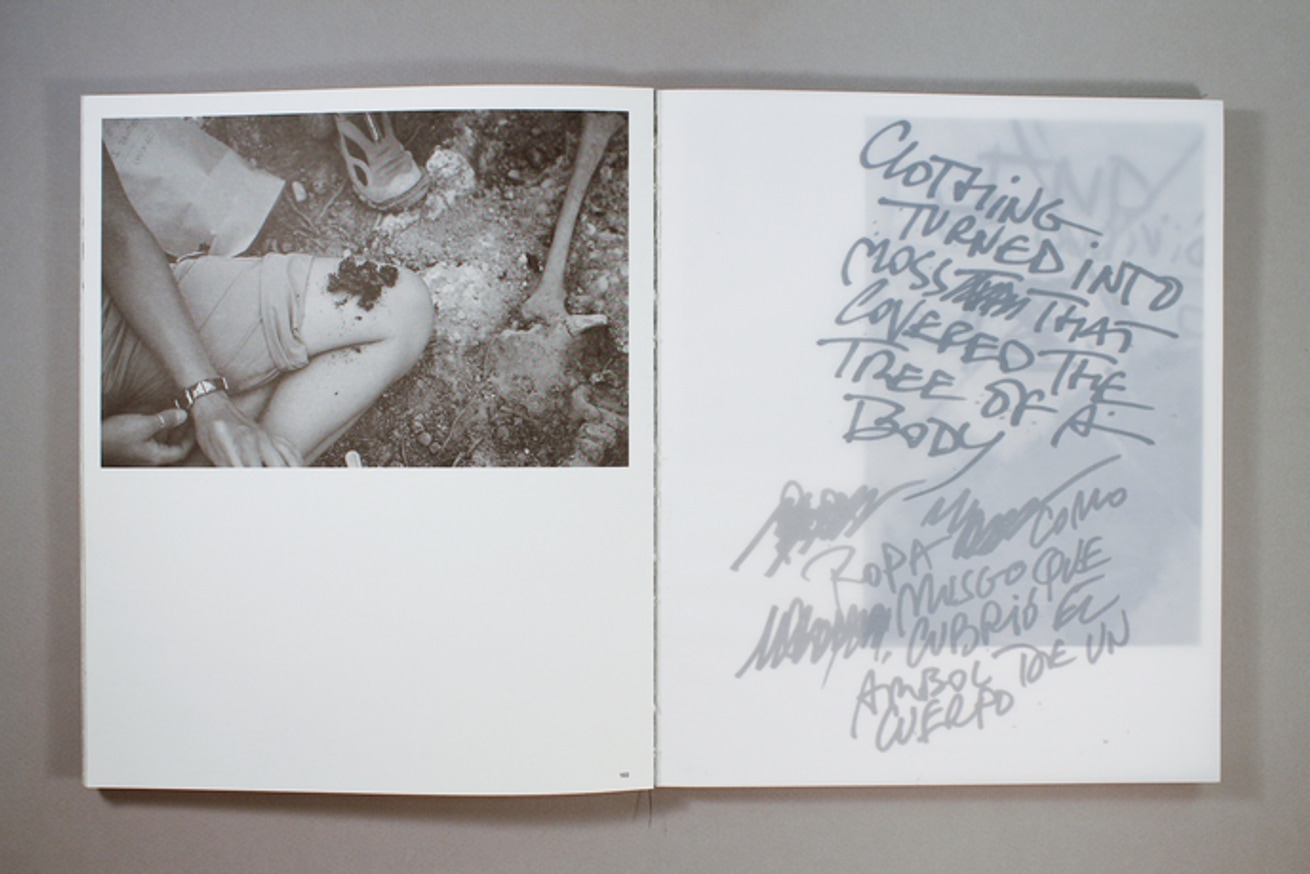 CLOTHING
TURNED INTO
MOSS THAT
COVERED THE
TREE OF A
BODY
COMO
ROPA
MUSGO QUE
CUBRIÓ EL
ARBOL DE UN
CUERPO